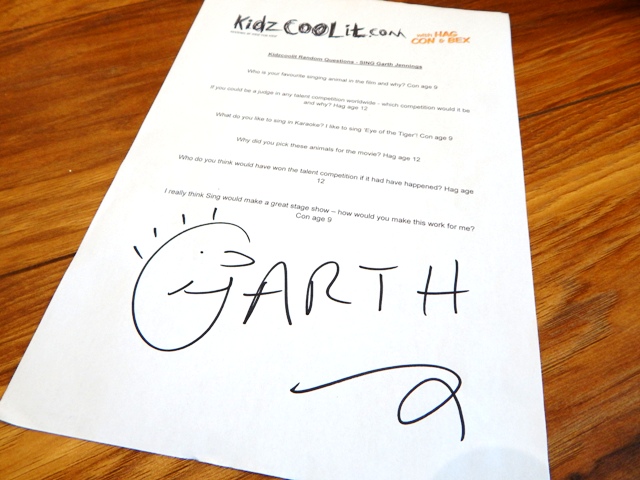 Kidz COOLit.com
with HAG
CON & BEX
Kidzcoolit Random Questions - SING Garth Jennings
Who is your favourite singing animal in the film and why? Con age 9
If you could be a judge in any talent competition worldwide – which competition would it be
and why? Hag age 12
What do you like to sing in Karaoke? I like to sing 'Eye of the Tiger'! Con age 9
Why did you pick these animals for the movie? Hag age 12
Who do you think would have won the talent competition if it had have happened? Hag age
12
I really think Sing would make a great stage show – how would you make this work for me?
Con age 9
GARTH